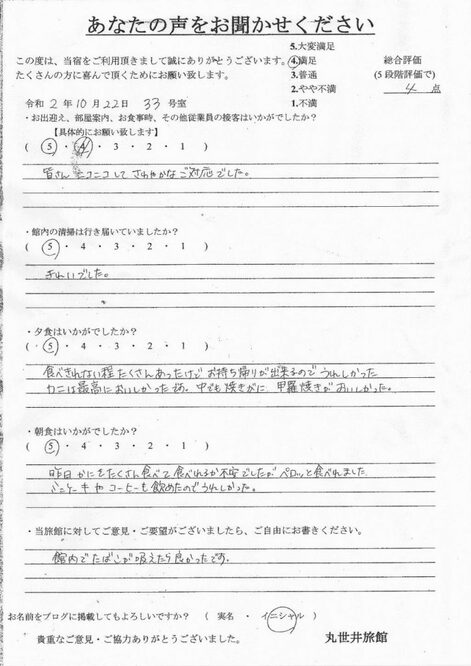 あなたの声をお聞かせください
この度は、当宿をご利用頂きまして誠にありがとうございます。
たくさんの方に喜んで頂くためにお願い致します。
5.大変満足
4.満足
3.普通
2.やや不満
1.不満
総合評価
(5段階評価で)
4 点
令和2年10月22日 33号室
・お出迎え、部屋案内、お食事時、その他従業員の接客はいかがでしたか?
【具体的にお願い致します】
( 5 ・ 4 ・ 3 ・ 2 ・ 1 )
皆さん ニコニコして さわやかなご対応でした。
・館内の清掃は行き届いていましたか?
( 5 ・ 4 ・ 3 ・ 2 ・ 1 )
きれいでした。
・夕食はいかがでしたか?
( 5 ・ 4 ・ 3 ・ 2 ・ 1 )
食べきれない程 たくさんあったけど お持ち帰りが出来るので うれしかった
カニは最高においしかった 中でも焼きがに、甲羅焼きがおいしかった。
・朝食はいかがでしたか?
( 5 ・ 4 ・ 3 ・ 2 ・ 1 )
昨日 かにをたくさん食べて 食べれるか不安でしたが ペロッと食べれました
ミニケーキや コーヒーも飲めたのでうれしかった。
・当旅館に対してご意見・ご要望がございましたら、ご自由にお書きください。
館内でたばこが吸えたら良かったです。
お名前をブログに掲載してもよろしいですか? ( 実名 ・ イニシャル )
貴重なご意見・ご協力ありがとうございました。
丸世井旅館